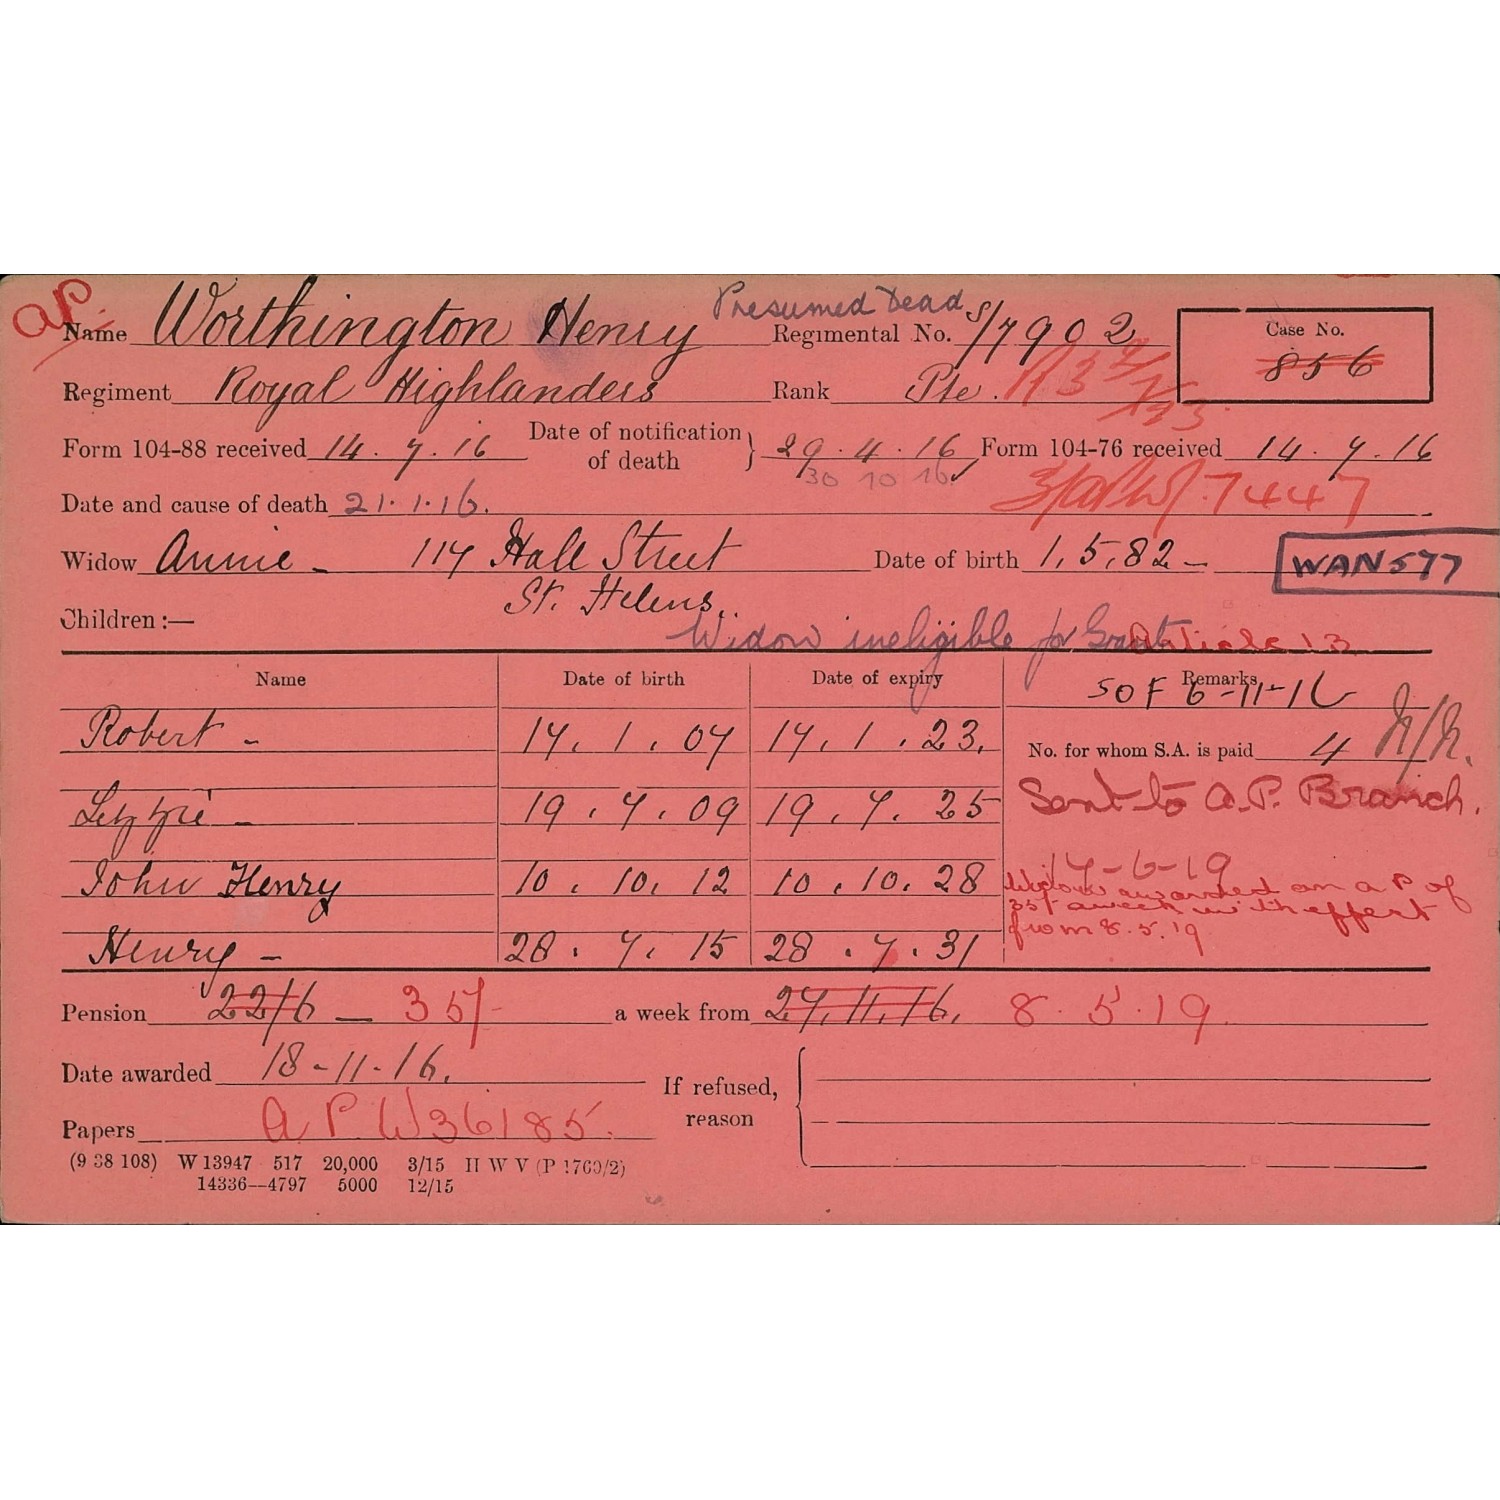 AP
Presumed Dead
Name Worthington Henry Regimental No. S/7902
Case No.
856
Regiment Royal Highlanders Rank Pte.
Form 104-88 received 14.7.16 Date of notification of death } 29.4.16 Form 104-76 received 14.7.16
30 10 16
Date and cause of death 21.1.16. 7447
Widow Annie - 117 Hall Street Date of birth 1.5.82 -
WAN577
St. Helens.
Children :—
Widow ineligible for Grant Article 13
Name Date of birth Date of expiry Remarks
SOF 6-11-16
Robert - 17. 1. 07 17. 1. 23.
No. for whom S.A. is paid 4
Lizzie - 19. 7. 09 19. 7. 25
Sent to A.P. Branch.
17-6-19
John Henry 10. 10. 12 10. 10. 28
Widow awarded an A P of
35/- a week with effect
from 8.5.19
Henry - 28. 7. 15 28. 7. 31
Pension 22/6 - 35/- a week from 27.11.16. 8.5.19
Date awarded 18-11-16.
If refused, reason
Papers A P W36185.
(9 38 108) W 13947 517 20,000 3/15 H W V (P 1760/2)
14336—4797 5000 12/15